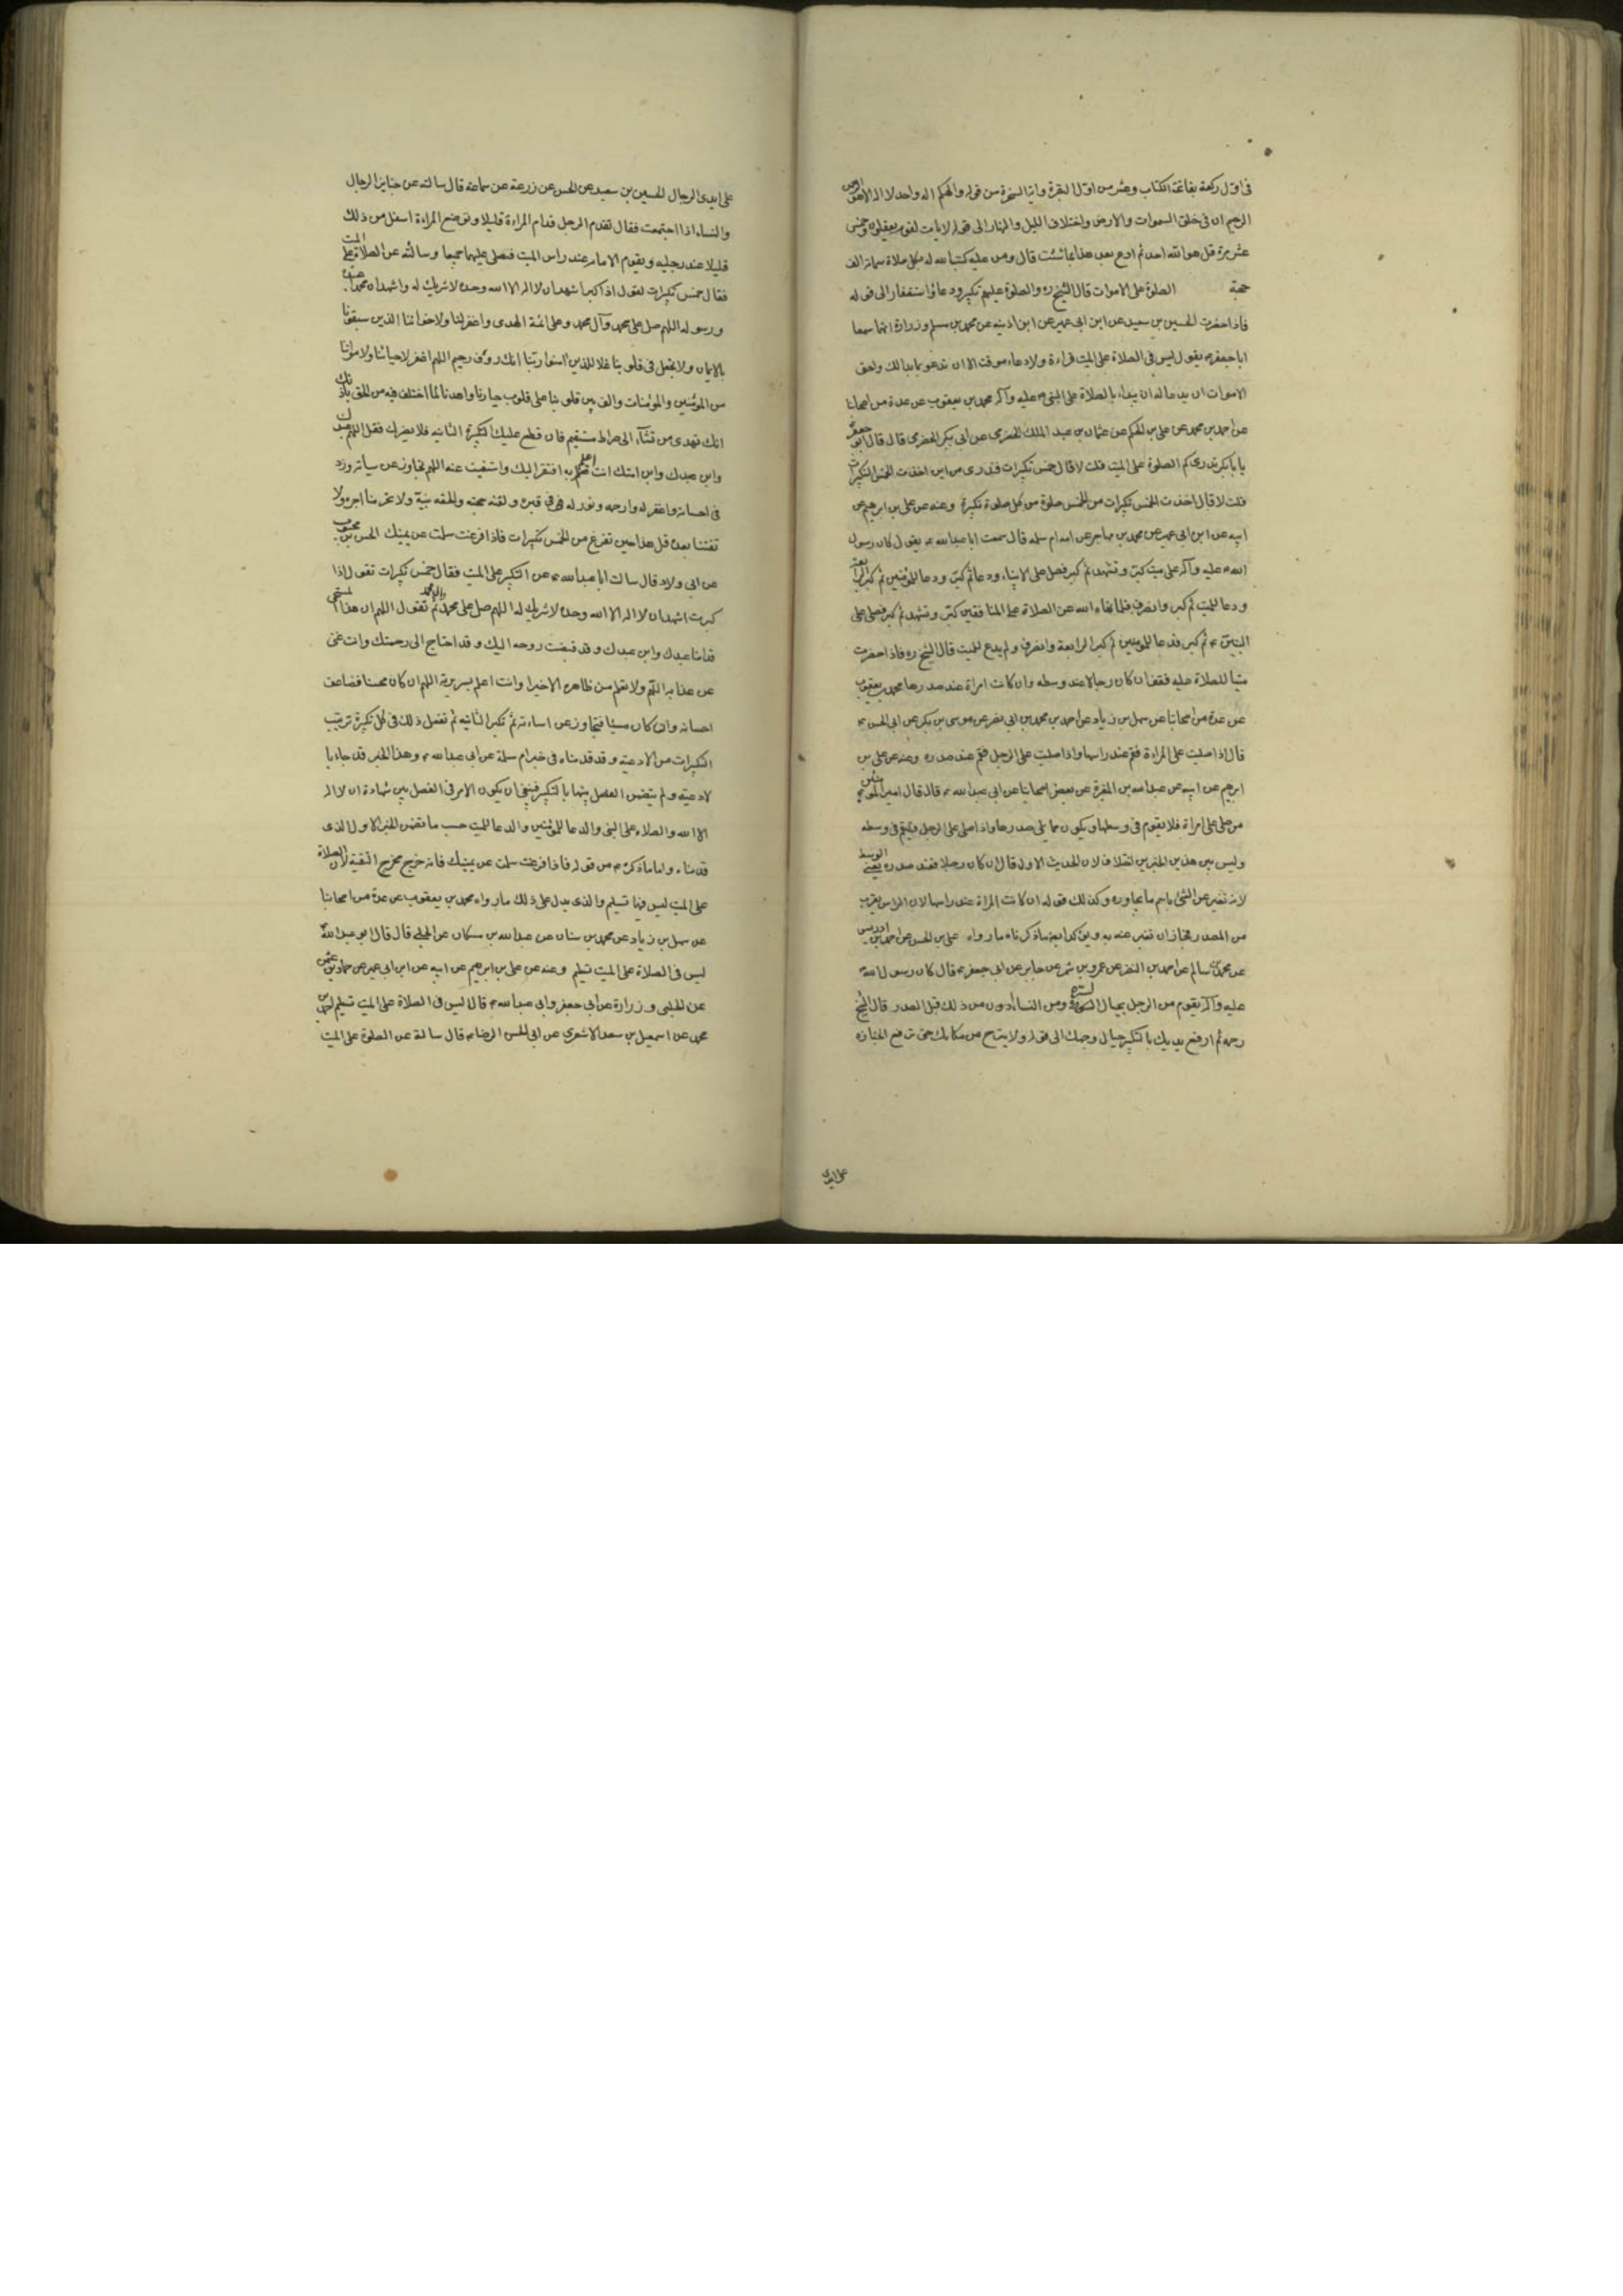 فى اول ركعة بفاتحة الكتاب وعشر من اول البقرة واية السخرة من قوله والهكم اله واحد لا اله الا هو الرحمن
الرحيم ان فى خلق السموات والارض واختلاف الليل والنهار الى قوله لايات لقوم يعقلون وخمس
عشر مرة قل هو الله احد ثم ادع بعد هذا بما شئت قال ومن عليه كتب الله له بكل صلاة سماية الف
حجة الصلوة على الاموات قال الشيخ ره والصلوة عليهم تكبير ودعاؤ استغفار الى قوله
فاذا حضرت الحسين بن سعيد عن ابن ابى عمير عن ابن اذينه عن محمد بن مسلم وزرارة انهما سمعا
ابا جعفر ع يقول ليس فى الصلاة على الميت قراءة ولا دعاء موقت الا ان تدعو بما بدا لك واحق
الاموات ان يدعا له ان يبداء بالصلاة على النبى ص عليه وآله محمد بن يعقوب عن عدة من اصحابنا
عن احمد بن محمد عن على بن الحكم عن عثمان بن عبد الملك الحضرمى عن ابى بكر الحضرمى قال قال ابو جعفر
يا بابكر تدرى كم الصلوة على الميت قلت لا قال خمس تكبيرات فتدرى من اين اخذت الخمس التكبيرات
قلت لا قال اخذت الخمس تكبيرات من الخمس صلوة من كل صلوة تكبيرة وعنه عن على بن ابرهيم عن
ابيه عن ابن ابى عمير عن محمد بن مهاجر عن امه ام سلمه قال سمعت ابا عبدالله ع يقول كان رسول
الله ص عليه وآله على ميت كبر وتشهد ثم كبر فصل على الانبياء ودعا ثم كبر ودعا للمؤمنين ثم كبر الرابعة
ودعا للميت ثم كبر وانصرف فلما نهاه الله عن الصلاة على المنافقين كبر وتشهد ثم كبر فصلى على
النبيين ع ثم كبر فدعا للمؤمنين ثم كبر الرابعة وانصرف ولم يدع للميت قال الشيخ ره فاذا حضرت
ميتا للصلاة عليه فقف ان كان رجلا عند وسطه وان كانت امراة عند صدرها محمد بن يعقوب
عن عدة من اصحابنا عن سهل بن زياد عن احمد بن محمد بن ابى نصر عن موسى بن بكر عن ابى الحسن ع
قال اذا صليت على المراءة فقم عند راسها واذا صليت على الرجل فقم عند صدره وعنه عن على بن
ابرهيم عن ابيه عن عبدالله بن المغيرة عن بعض اصحابنا عن ابى عبدالله ع قال قال امير المؤمنين ع
من صلى على امراة فلا يقوم فى وسطها ويكون مما يلى صدرها واذا صلى على الرجل فليقم فى وسطه
وليس بين هذين الخبرين اختلاف لان الحديث الاول قال ان كان رجلا فعند صدره يعنى الوسط
لانه تعبر عن الشئ باسم ما يجاوره وكذلك قوله ان كانت المراة عند راسها لان الراس يقرب
من الصدر فجاز ان تعبر عنه به ما ذكرناه ما رواه على بن الحسن عن احمد بن ادريس
عن محمد بن سالم عن احمد بن النضر عن عمرو بن شمر عن جابر عن ابى جعفر ع قال كان رسول الله
عليه وآله يقوم من الرجل بحيال السرة ومن النساء ادون من ذلك قبل الصدر قال الشيخ
رحمه ثم ارفع يديك بالتكبير حيال وجهك الى قوله ولا يبرح من مكانك حتى ترفع الجنازة
على ايدى
على ايدى الرجال الحسين بن سعيد عن الحسن عن زرعة عن سماعة قال سالته عن جنايز الرجال
والنساء اذا اجتمعت فقال تقدم الرجل قدام المراءة قليلا وتوضع المراءة اسفل من ذلك
قليلا عند رجليه ويقوم الامام عند راس الميت فيصلى عليهما جميعا وسالته عن الصلاة على الميت
فقال خمس تكبيرات تقول اذا كبر اشهد ان لا اله الا الله وحده لا شريك له واشهد ان محمدا عبده
ورسوله اللهم صل على محمد وآل محمد وعلى ائمة الهدى واغفر لنا ولاخواننا الذين سبقونا
بالايمان ولا تجعل فى قلوبنا غلا للذين امنوا ربنا انك رؤف رحيم اللهم اغفر لاحيائنا ولامواتنا
من المؤمنين والمؤمنات والف بين قلوبنا على قلوب خيارنا واهدنا لما اختلف فيه من الحق باذنك
انك تهدى من تشآء الى صراط مستقيم فان قطع عليك التكبيرة الثانيه فلا يضرك فقل اللهم عبدك
وابن عبدك وابن امتك انت اعلم به افتقر اليك واستغنيت عنه اللهم تجاوز عن سياته وزد
فى احسانه واغفر له وارحمه ونور له فى قبره ولقنه حجته والحقه بنبيه ولا تحرمنا اجره ولا
تفتنا بعده قل هذا حين تفرغ من الخمس تكبيرات فاذا فرغت سلمت عن يمينك الحسن بن محبوب
عن ابى ولاد قال سالت ابا عبدالله ع عن التكبير على الميت فقال خمس تكبيرات تقول اذا
كبرت اشهد ان لا اله الا الله وحده لا شريك له اللهم صل على محمد وال محمد ثم تقول اللهم ان هذا المسجى
قدامنا عبدك وابن عبدك وقد قبضت روحه اليك وقد احتاج الى رحمتك وانت غنى
عن عذابه اللهم ولا نعلم من ظاهره الا خيرا وانت اعلم بسريرته اللهم ان كان محسنا فضاعف
احسانه وان كان مسيئا فتجاوز عن اساءته ثم تكبر الثانيه ثم تفعل ذلك فى كل تكبيرة ترتيب
التكبيرات من الادعية وقد قدمناه فى خبر ام سلمة عن ابى عبدالله ع وهذا الخبر قد جاء با
لادعية ولم يتضمن الفصل بينها بالتكبير فينبغى ان يكون الامر فى الفصل بين شهادة ان لا اله
الا الله والصلاه على النبى والدعا للمؤمنين والدعا للميت حسب ما تضمن الخبر الاول الذى
قدمناه واما ما ذكره ع من قوله فاذا فرغت سلمت عن يمينك فانه خرج مخرج التقية لان الصلاة
على الميت ليس فيها تسليم والذى يدل على ذلك ما رواه محمد بن يعقوب عن عدة من اصحابنا
عن سهل بن زياد عن محمد بن سنان عن عبدالله بن مسكان عن الحلبى قال قال ابو عبدالله
ليس فى الصلاة على الميت تسليم وعنه عن على بن ابرهيم عن ابيه عن ابن ابى عمير عن حماد بن عثمن
عن الحلبى وزرارة عن ابى جعفر وابى عبدالله ع قال ليس فى الصلاة على الميت تسليم
محمد عن اسمعيل بن سعد الاشعرى عن ابى الحسن الرضا ع قال سالته عن الصلوة على الميت